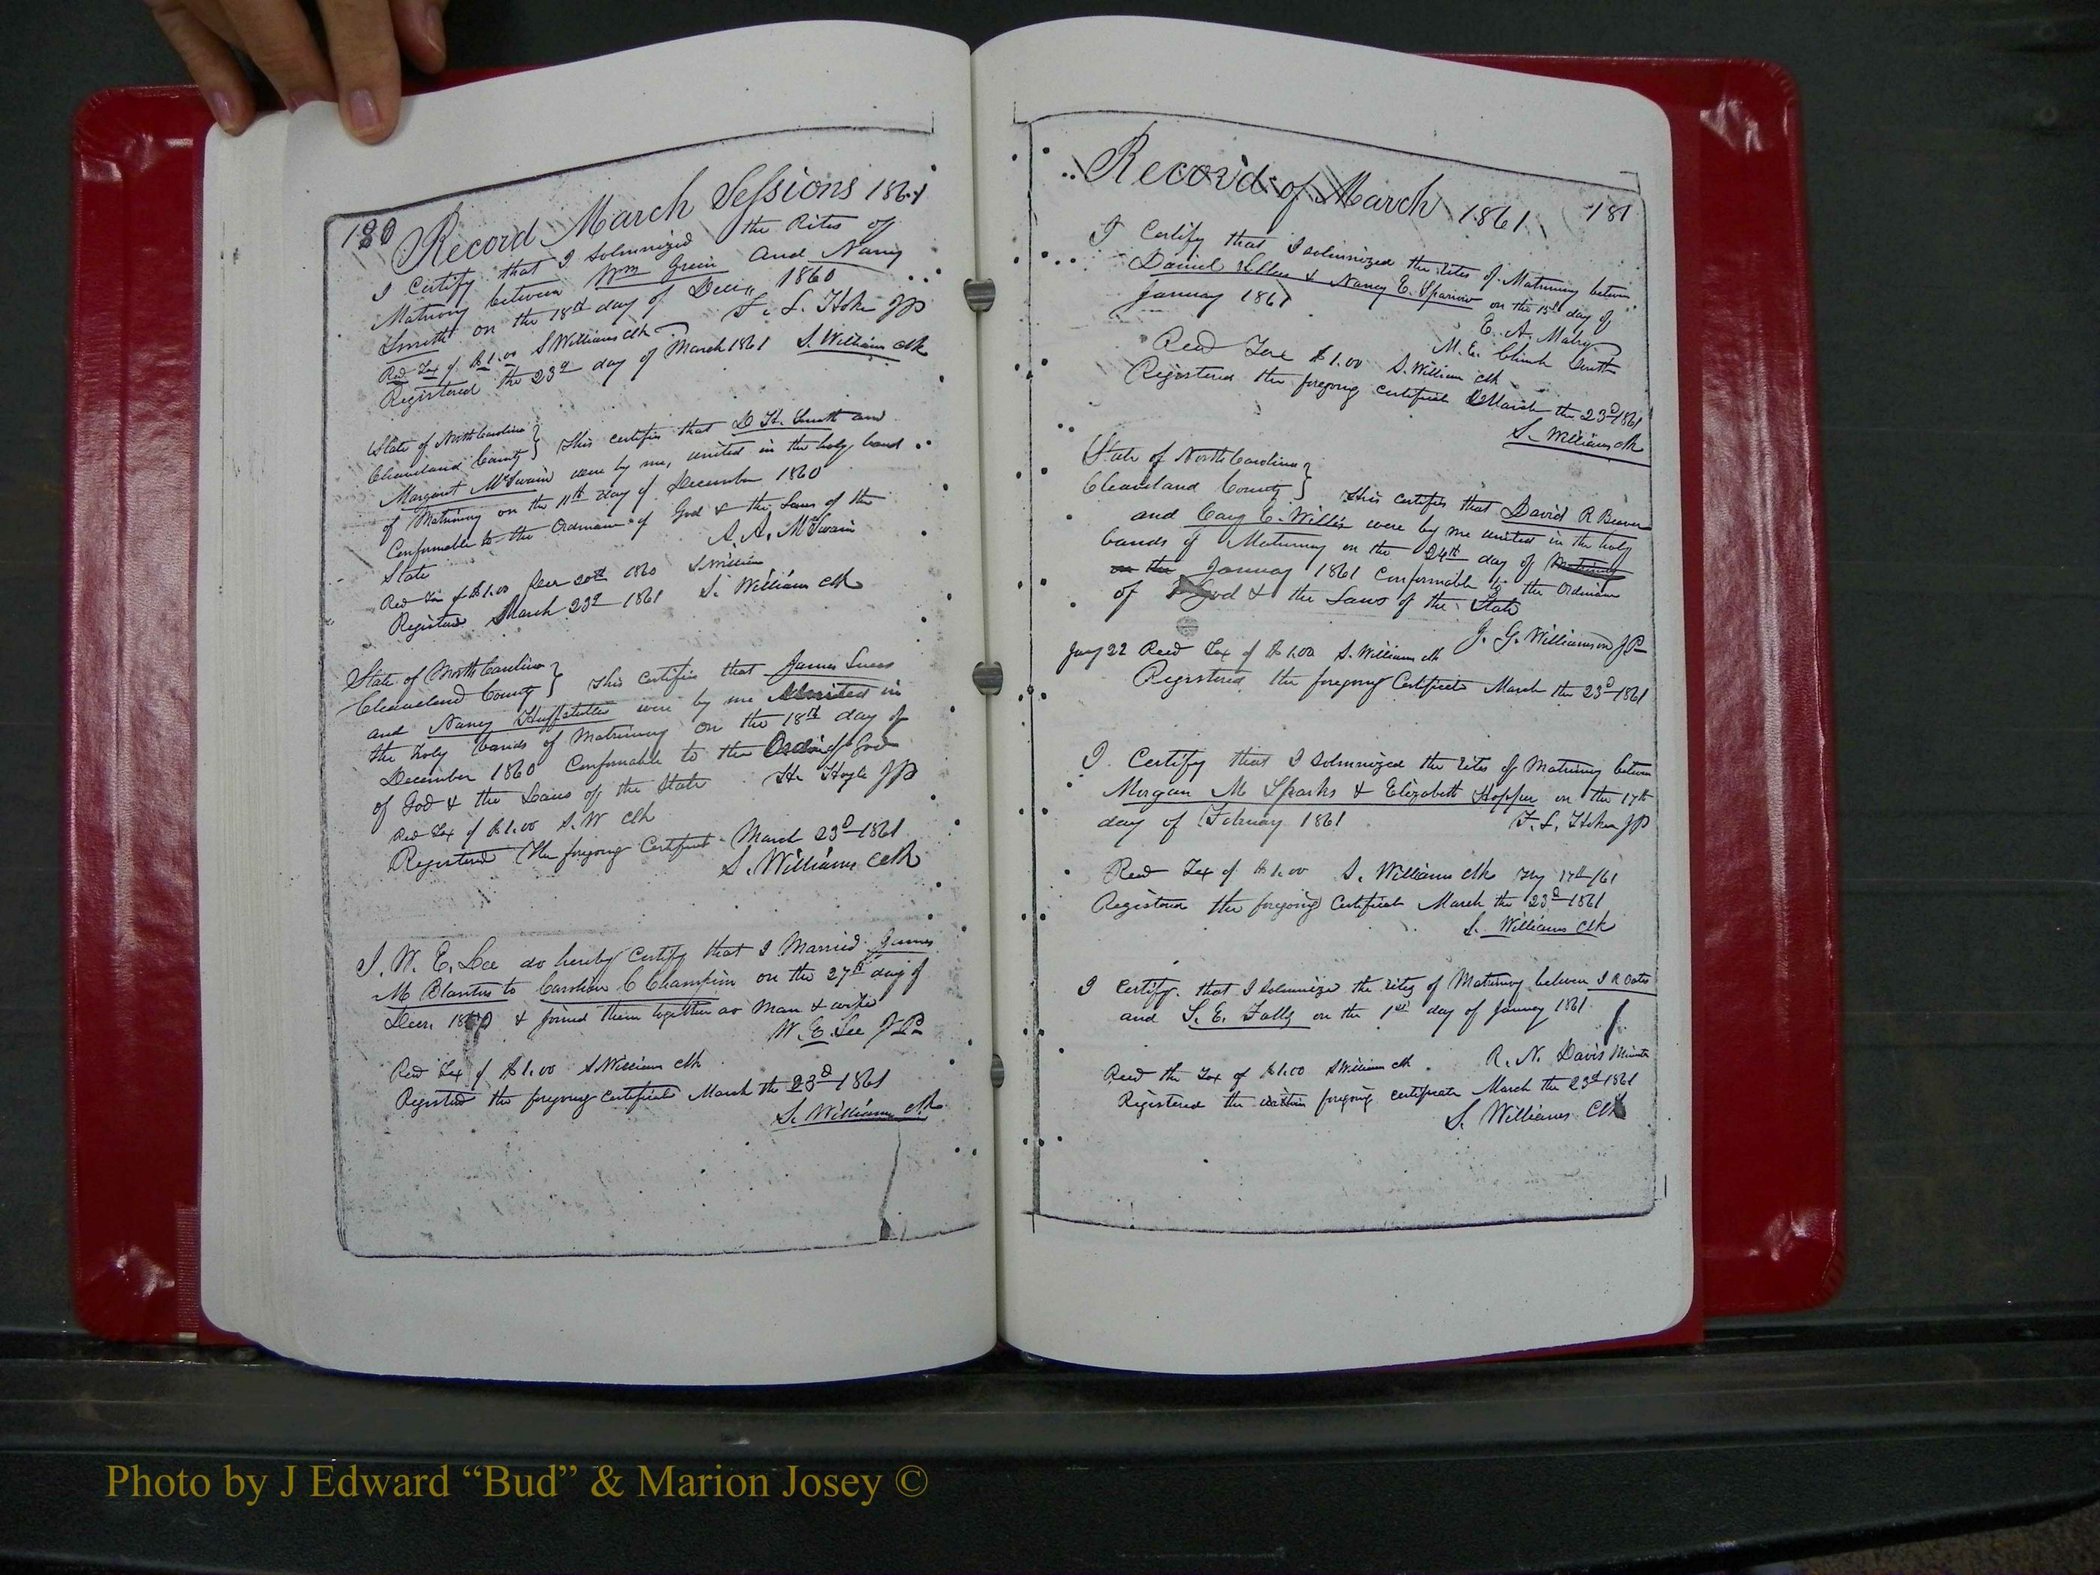 180 Record March Sessions 1861
I Certify that I Solumnized the Rites of
Matrimony between Wm Green and Nancy
Smith on the 18th day of Decr 1860
F. L. Hoke JP
Recd Tax of $1.00 S Williams clk
Registered the 23d day of March 1861 S. Williams clk
State of North Carolina
Cleaveland County } This certifies that D H. Smith and
Margaret McSwain were by me, united in the holy band
of Matrimony on the 11th day of December 1860
Conformable to the Ordinance of God & the Laws of the
State A. A. McSwain
Recd Tax of $1.00 Decr 20th 1860 S Williams
Registered March 23d 1861 S. Williams clk
State of North Carolina
Cleaveland County } This certifies that James
and Nancy Huffstutler were by me United in
the holy bands of Matrimony on the 18th day of
December 1860 Conformable to the
of God & the Laws of the State H. Hoyle JP
Recd Tax of $1.00 S. W clk
Registered the foregoing Certificate March 23d 1861
S. Williams clk
I. W. E. Lee do hereby Certify that I Married James
M Blanton to Caroline C Champion on the 27th day of
Decr. 1860 & joined them together as Man & wife
W. E. Lee J P
Recd Tax of $1.00 S Williams clk
Registered the foregoing certificate March the 23d 1861
S. Williams clk
Record of March 1861 181
I Certify that I solumnized the rites of Matrimony between
Daniel & Nancy E. Sparrow on the 15th day of
January 1861
E. A.
M. E. Church South
Recd Tax $1.00 S. William clk
Registered the foregoing certificate March the 23d 1861
S. Williams clk
State of North Carolina
Cleaveland County } This certifies that David R Beaver
and E. Willis were by me united in the holy
bands of Matrimony on the 24th day of
January 1861 Conformable to the Ordinance
of God & the Laws of the State
J. G. Williamson JP
Jany 22 Recd Tax of $1.00 S. Williams clk
Registered the foregoing Certificate March the 23d 1861
I Certify that I Solumnized the rites of Matrimony between
Morgan M Sparks & Elizabeth Hopper on the 17th
day of February 1861 F. L. Hoke JP
Recd Tax of $1.00 S. Williams clk Fby 17th /61
Registered the foregoing Certificate March the 23d 1861
S. Williams clk
I certify that I Solumnized the rites of Matrimony between J R Oates
and S. E. Falls on the 1st day of January 1861
R. N. Davis Minister
Recd the Tax of $1.00 S William clk
Registered the foregoing certificate March the 23d 1861
S. Williams Clk
Photo by J Edward “Bud” & Marion Josey ©